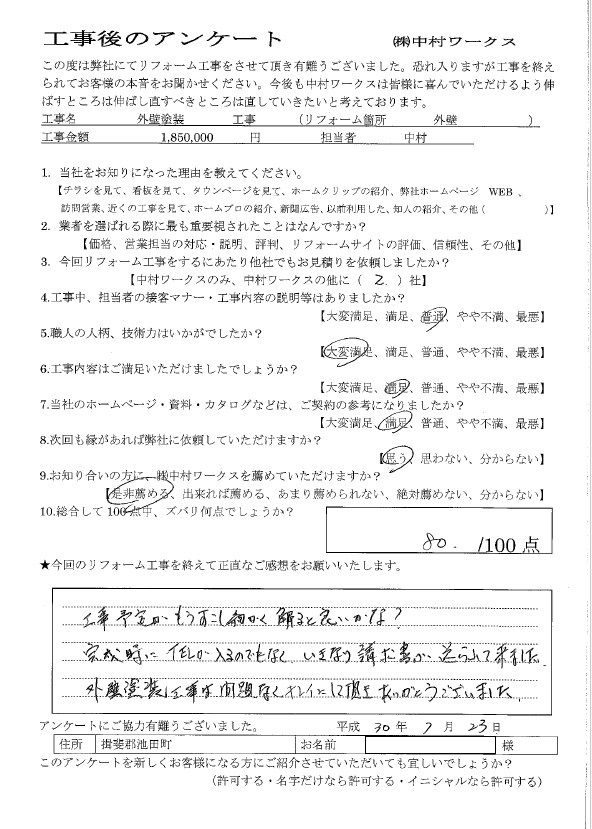 工事後のアンケート ㈱中村ワークス
この度は弊社にてリフォーム工事をさせて頂き有難うございました。恐れ入りますが工事を終え
られてお客様の本音をお聞かせください。今後も中村ワークスは皆様に喜んでいただけるよう伸
ばすところは伸ばし直すべきところは直していきたいと考えております。
工事名 外壁塗装 工事 (リフォーム箇所 外壁 )
工事金額 1,850,000 円 担当者 中村
1. 当社をお知りになった理由を教えてください。
【チラシを見て、看板を見て、タウンページを見て、ホームクリップの紹介、弊社ホームページ WEB 、
訪問営業、近くの工事を見て、ホームプロの紹介、新聞広告、以前利用した、知人の紹介、その他 ( )】
2. 業者を選ばれる際に最も重要視されたことはなんですか?
【価格、営業担当の対応・説明、評判、リフォームサイトの評価、信頼性、その他】
3. 今回リフォーム工事をするにあたり他社でもお見積りを依頼しましたか?
【中村ワークスのみ、中村ワークスの他に ( 2. ) 社】
4.工事中、担当者の接客マナー・工事内容の説明等はありましたか?
【大変満足、満足、普通、やや不満、最悪】
5.職人の人柄、技術力はいかがでしたか?
【大変満足、満足、普通、やや不満、最悪】
6.工事内容はご満足いただけましたでしょうか?
【大変満足、満足、普通、やや不満、最悪】
7.当社のホームページ・資料・カタログなどは、ご契約の参考になりましたか?
【大変満足、満足、普通、やや不満、最悪】
8.次回も縁があれば弊社に依頼していただけますか?
【思う、思わない、分からない】
9.お知り合いの方に、㈱中村ワークスを薦めていただけますか?
【是非薦める、出来れば薦める、あまり薦められない、絶対薦めない、分からない】
10.総合して 100 点中、ズバリ何点でしょうか?
80. /100 点
★今回のリフォーム工事を終えて正直なご感想をお願いいたします。
工事予定がもうすこし細かく解ると良いかな?
完成時に TELが入るのでもなく いきなり請求書が送られて来ました.
外壁塗装工事は問題なくキレイにして頂きありがとうございました.
アンケートにご協力有難うございました。 平成 30 年 7 月 23 日
住所 揖斐郡池田町 お名前 様
このアンケートを新しくお客様になる方にご紹介させていただいても宜しいでしょうか?
(許可する・名字だけなら許可する・イニシャルなら許可する)